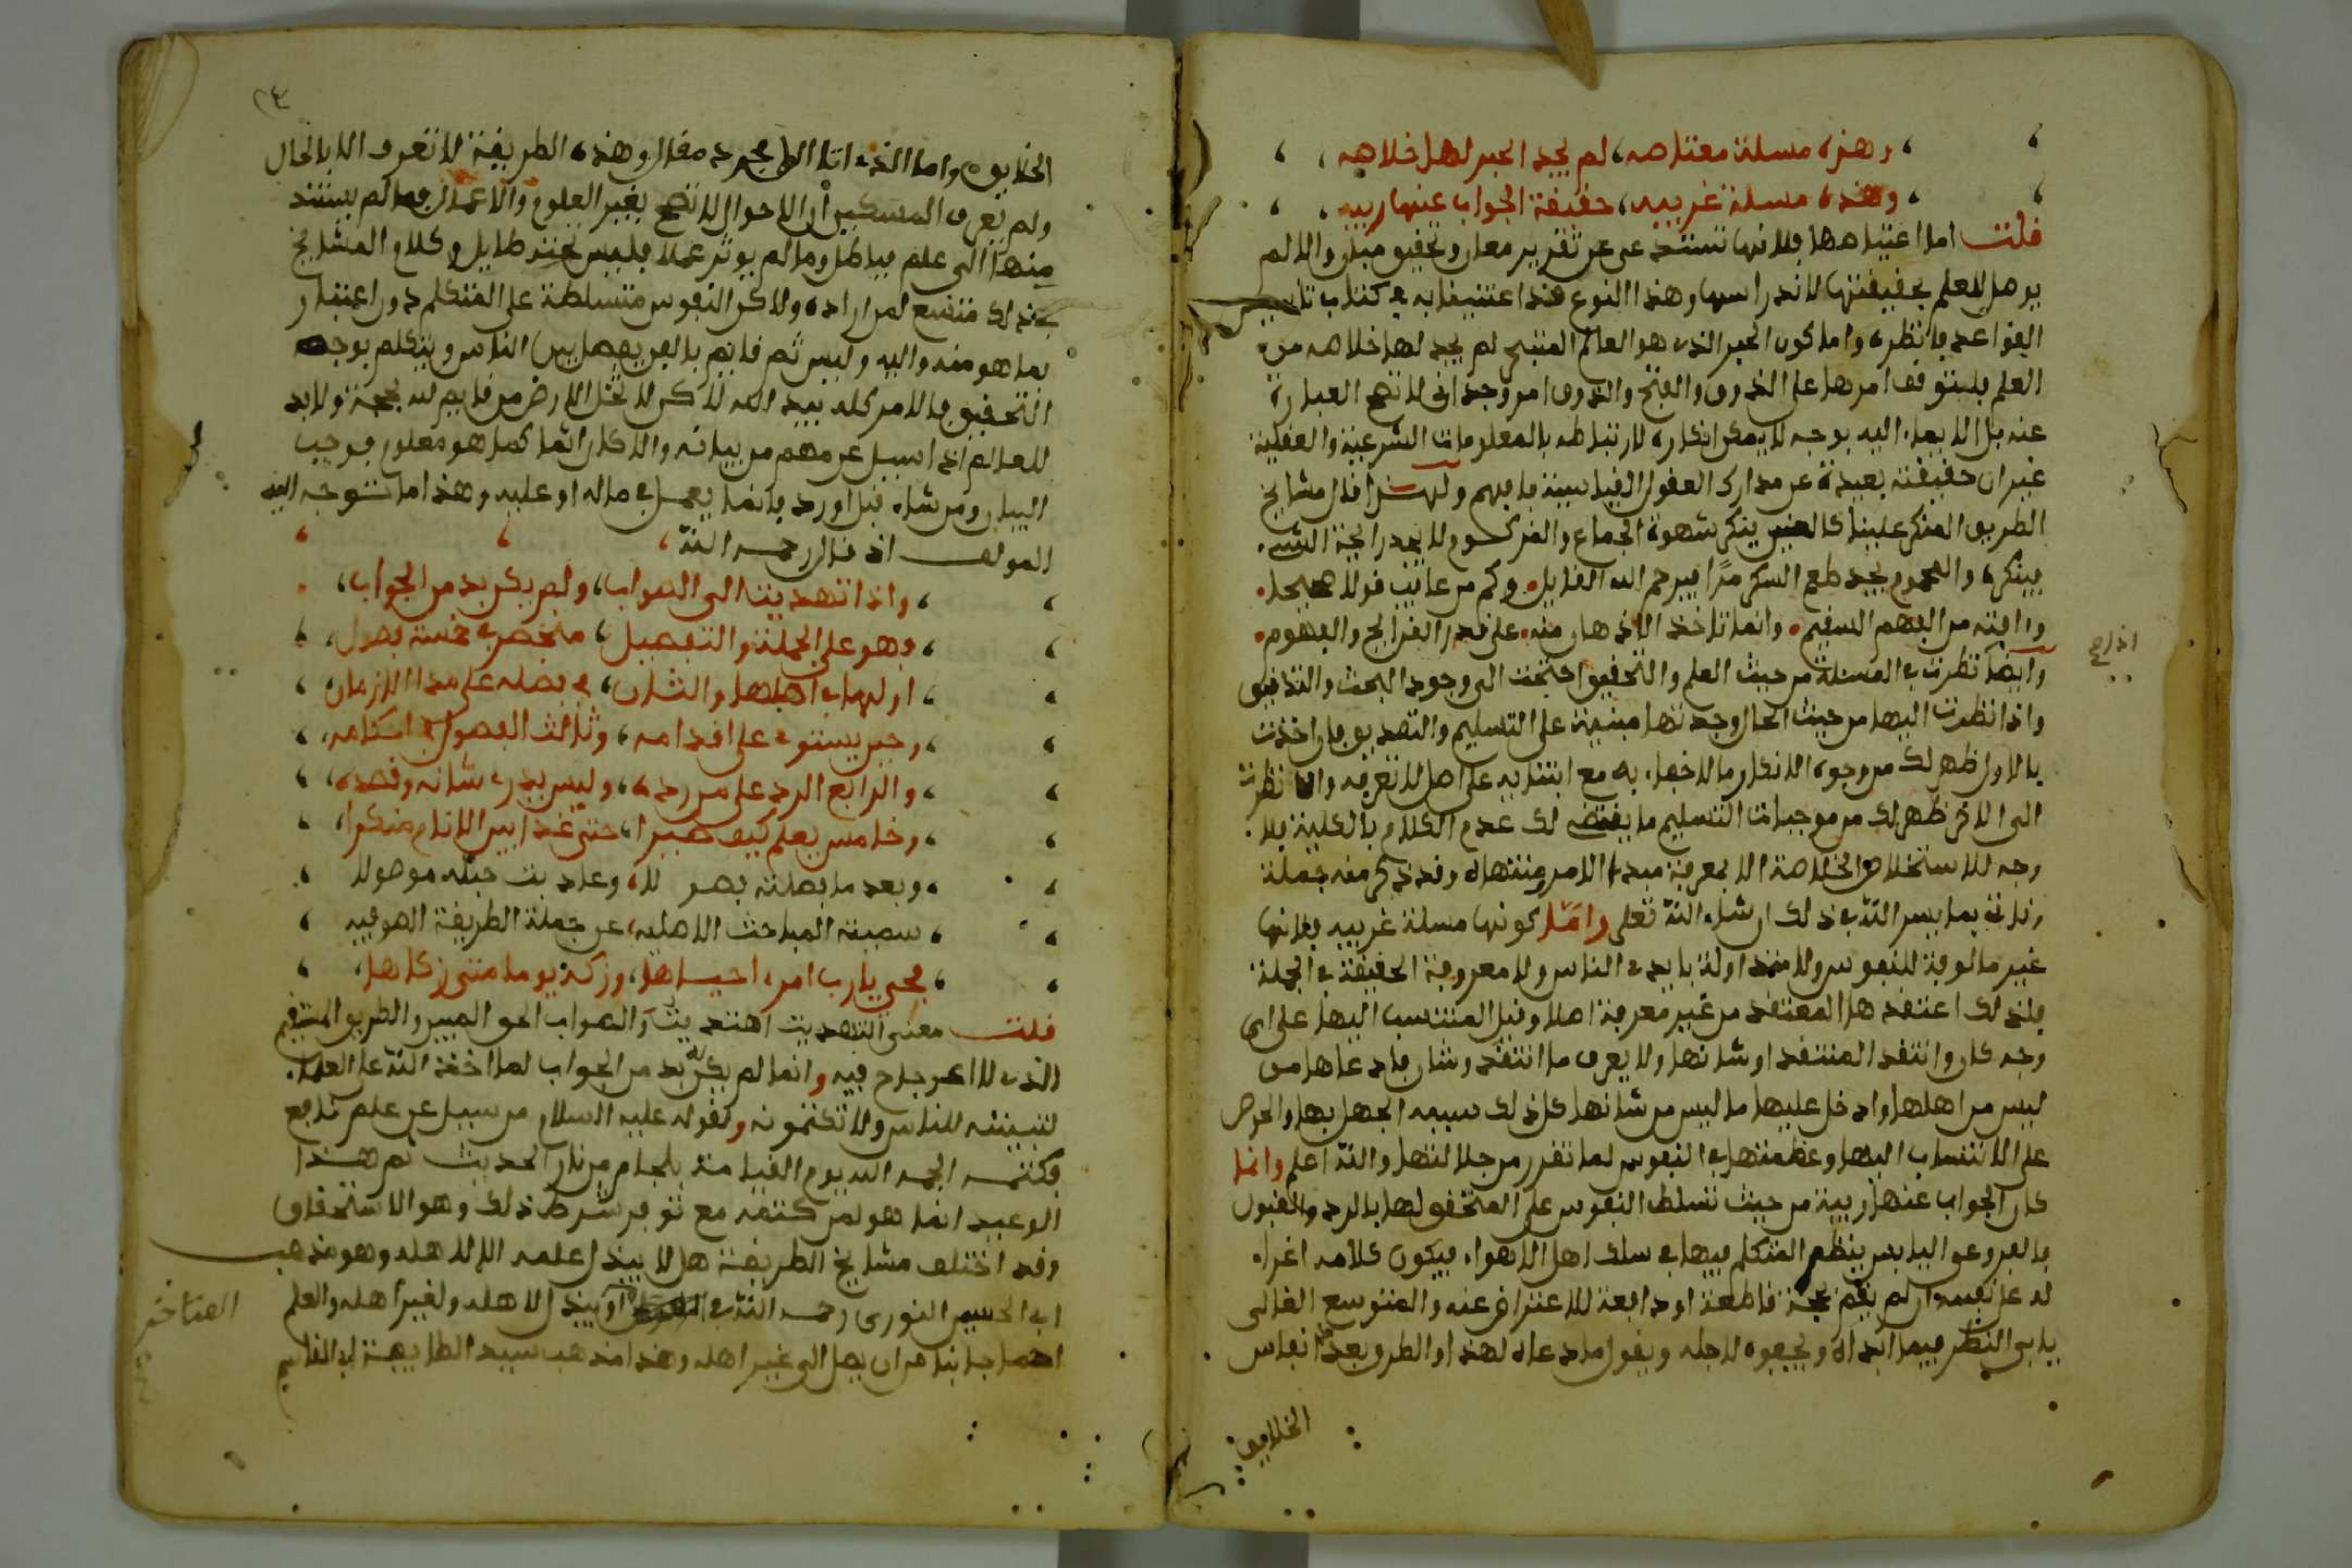 وهذه مسلة معتاصه، لم يجد الحبر لها خلاصه
وهذه مسلة غريبه، حقيقة الجواب عنها ريبه
قلت اما اعتياصها فلانها تستند عن تقرير معان وتحقيق مبان والا لم
يوصل للعلم بحقيقتها لاندراسها وهذا النوع قد اعتنينا به في كتاب تاسيس
القواعد فانظره واما كون الحبر الذي هو العالم المتبحر لم يجد لها خلاصه من
العلم فلتوقف امرها على الذوق والفتح والذوق امر وجداني لا تصح العبارة
عنه بل الايماء اليه بوجه لا يمكن انكاره لارتباطه بالمعلومات الشرعية والعقلية
غير ان حقيقته بعيدة عن مدارك العقول القياسية فافهم ولهذا قال مشايخ
الطريق المنكر علينا كالعنين ينكر شهوة الجماع والمزكوم لا يجد رايحة الشيء
فينكره والمحموم يجد طعم السكر مرا فيرحم الله القايل وكم من عايب قولا صحيحا
واافته من الفهم السقيم وانما تاخذ الاذهان منه على قدر القرايح والفهوم
وايضا نظرت في المسئلة من حيث العلم والتحقيق احتجت الى وجود البحث والتدقيق
اذا صح
واذا نظرت اليها من حيث الحال وجدتها مبنية على التسليم والتصديق فان اخذت
بالاول ظهر لك من وجوه الانكار ما لا خفاء به مع ابتنايه على اصل لا تعرفه وان نظرت
الى الاخر ظهر لك من موجبات التسليم ما يقتضي لك عدم الكلام بالكلية فلا
وجه للاستخلاص الخلاصة الا بمعرفة مبدء الامر ومنتهاه وقد ذكر منه جملة
وناتي بما يسر الله في ذلك ان شاء الله تعلى واما كونها مسلة غريبه فلانها
غير مالوفة للنفوس ولا متداولة بايدي الناس ولا معروفة الحقيقة في الجملة
فلذلك اعتقدها المعتقد من غير معرفة اصلا وقبل المنتسب اليها على اي
وجه كان وانتقد المنتقد او شانها ولا يعرف ما انتقد وشان فادعاها من
ليس من اهلها وادخل عليها ما ليس من شانها كل ذلك سببه الجهل بها والحرص
على الانتساب اليها وعظمتها في النفوس لما تقرر من جلالتها والله اعلم وانما
كان الجواب عنها ريبة من حيث تسلط النفوس على المتحقق لها بالرد والقبول
فالفروعي اليابس ينظم المتكلم فيها في سلك اهل الاهواء فيكون كلامه اغراء
له عن نفسه ان لم يقم بحجة قاطعة او دافعة للاعتراض عنه والمتوسع الغالي
يابى النظر فيما ابداه ويجفوه لاجله ويقول ما دعاه لهذا والطرق بعدد انفاس
الخلايق
٢٤
الخلايق واما الذي اتا الا بمجرد مقال وهذه الطريقة لا تعرف الا بالحال
ولم يعرف المسكين ان الاحوال لا تصح بغير العلوم والاعمال فما لم يستند
منها الى علم فباطل وما لم يوثر عملا فليس تحته طايل وكلام المشايخ
في ذلك متسع لمن اراده ولاكن النفوس متسلطة على المتكلم دون اعتبار
بما هو منه واليه وليس ثم قايم بالحق يفصل بين الناس ويتكلم بوجه
التحقيق فالامر كله بيد الله لاكن لا تخل الارض من قايم لله بحجة ولابد
للعالم اذا سيل عن مهم من بيانه والا كان اثما كما هو معلوم فوجب
البيان ومن شاء قبل او رد فانما يعمل في ماله او عليه وهذا ما نتوجه اليه
المولف اذ قال رحمه الله
واذ انتهديت الى الصواب، ولم يكن بد من الجواب،
فهو على الجملة والتفصيل، منحصر في خمسة فصول،
اولها في اصلها والثان، في فضله على مدا الازمان
وحين يستوي على اقدامه، وثالث الفصول في احكامه،
والرابع الرد على من رده، وليس يدري شانه وقصده،
وخامس يعلم كيف صيرا، حتى غدا بين الانام منكرا،
وبعد ما فصلته فصولا، وعاد بت حبله موصولا
سميته المباحث الاصليه، عن جملة الطريقة الصوفيه
فحي يا رب امرء احياها، وزكه يوما متى زكاها،
قلت معنى انتهديت اهتديت والصواب الحق المبين والطريق المستقيم
الذي لا اعوجاج فيه وانما لم يكن له بد من الجواب لما اخذ الله على العلماء
لتبيننه للناس ولا تكتمونه ولقوله عليه السلام من سيل عن علم نافع
فكتمه الجمه الله يوم القيامة بلجام من نار الحديث ثم هذا
الوعيد انما هو لمن كتمه مع توفر شرط ذلك وهو الاستحقاق
وقد اختلف مشايخ الطريقة هل لا يبذل علمه الا لاهله وهو مذهب
المتاخر
ابي الحسين النوري رحمه الله او يبذل لاهله ولغير اهله والعلم
احما جانبا من ان يصل الى غير اهله وهذا مذهب سيد الطايفة ابي القاسم